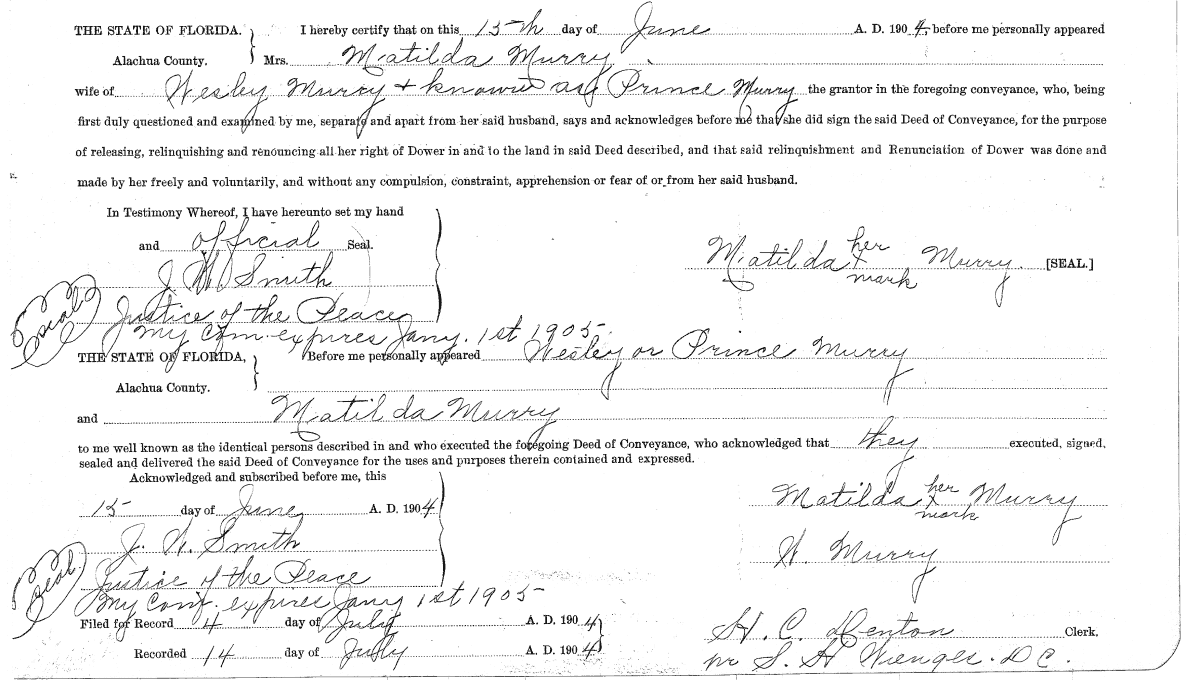 THE STATE OF FLORIDA. I hereby certify that on this 15th day of June A. D. 1904, before me personally appeared
Alachua County. Mrs. Matilda Murry
wife of Wesley Murry & known as Prince Murry the grantor in the foregoing conveyance, who, being
first duly questioned and examined by me, separate and apart from her said husband, says and acknowledges before me that she did sign the said Deed of Conveyance, for the purpose
of releasing, relinquishing and renouncing all her right of Dower in and to the land in said Deed described, and that said relinquishment and Renunciation of Dower was done and
made by her freely and voluntarily, and without any compulsion, constraint, apprehension or fear of or from her said husband.
In Testimony Whereof, I have hereunto set my hand
and official Seal.
Matilda her x mark Murry [SEAL.]
J. W. Smith
Seal Justice of the Peace
My Com. expires Jany. 1st 1905.
THE STATE OF FLORIDA, Before me personally appeared Wesley or Prince Murry
Alachua County.
and Matilda Murry
to me well known as the identical persons described in and who executed the foregoing Deed of Conveyance, who acknowledged that they executed, signed,
sealed and delivered the said Deed of Conveyance for the uses and purposes therein contained and expressed.
Acknowledged and subscribed before me, this
15 day of June A. D. 1904
Matilda her x mark Murry
J. W. Smith
W. Murry
Seal. Justice of the Peace
My Com. expires Jany 1st 1905
Filed for Record 4 day of July A. D. 1904
H. C. Denton Clerk.
Recorded 14 day of July A. D. 1904
pr S. H. Wienges. D C.